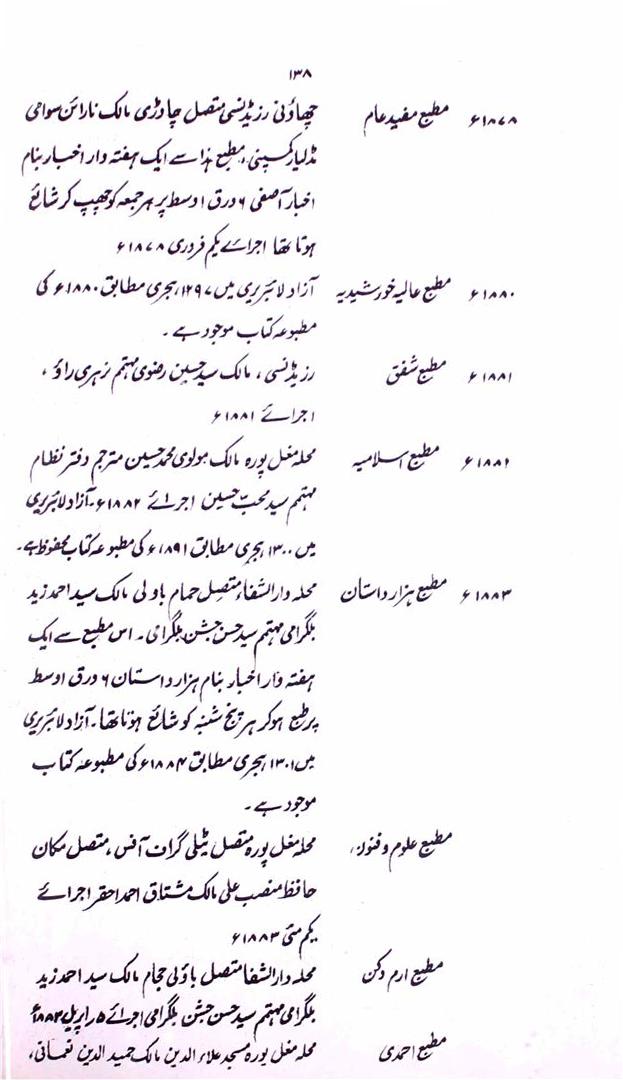 ۱۳۸
۱۸۷۸ء مطبع مفید عام چھاؤنی رزیڈنسی متصل چاوڑی مالک نارائن سوامی
مڈلیار کمپنی، مطبع ہذا سے ایک ہفتہ وار اخبار بنام
اخبار آصفی ۶ ورق اوسط پر ہر جمعہ کو چھپ کر شائع
ہوتا تھا اجرائے یکم فروری ۱۸۷۸ء
۱۸۸۰ء مطبع عالیہ خورشیدیہ آزاد لائبریری میں ۱۲۹۷ ہجری مطابق ۱۸۸۰ء کی
مطبوعہ کتاب موجود ہے۔
۱۸۸۱ء مطبع شفق رزیڈنسی، مالک سید حسین رضوی مہتمم نرہری راؤ،
اجرائے ۱۸۸۱ء
۱۸۸۲ء مطبع اسلامیہ محلہ مغل پورہ مالک مولوی محمد حسین مترجم دفتر نظام
مہتمم سید محب حسین اجرائے ۱۸۸۲ء۔ آزاد لائبریری
میں ۱۳۰۰ ہجری مطابق ۱۸۹۱ء کی مطبوعہ کتاب محفوظ ہے۔
۱۸۸۳ء مطبع ہزار داستان محلہ دارالشفاء متصل حمام باولی مالک سید احمد زید
بلگرامی مہتمم سید حسن جشن بلگرامی۔ اس مطبع سے ایک
ہفتہ وار اخبار بنام ہزار داستان ۶ ورق اوسط
پر طبع ہوکر ہر پنج شنبہ کو شائع ہوتا تھا۔ آزاد لائبریری
میں ۱۳۰۱ ہجری مطابق ۱۸۸۴ء کی مطبوعہ کتاب
موجود ہے۔
مطبع علوم و فنون، محلہ مغل پورہ متصل ٹیلی گراف آفس، متصل مکان
حافظ منصب علی مالک مشتاق احمد احقر اجرائے
یکم مئی ۱۸۸۳ء
مطبع ارم دکن محلہ دارالشفا متصل باؤلی حجام مالک سید احمد زید
بلگرامی مہتمم سید حسن جشن بلگرامی اجرائے ۵ اپریل ۱۸۸۳ء
مطبع احمدی محلہ مغل پورہ مسجد علاء الدین مالک حمید الدین نعمانی،